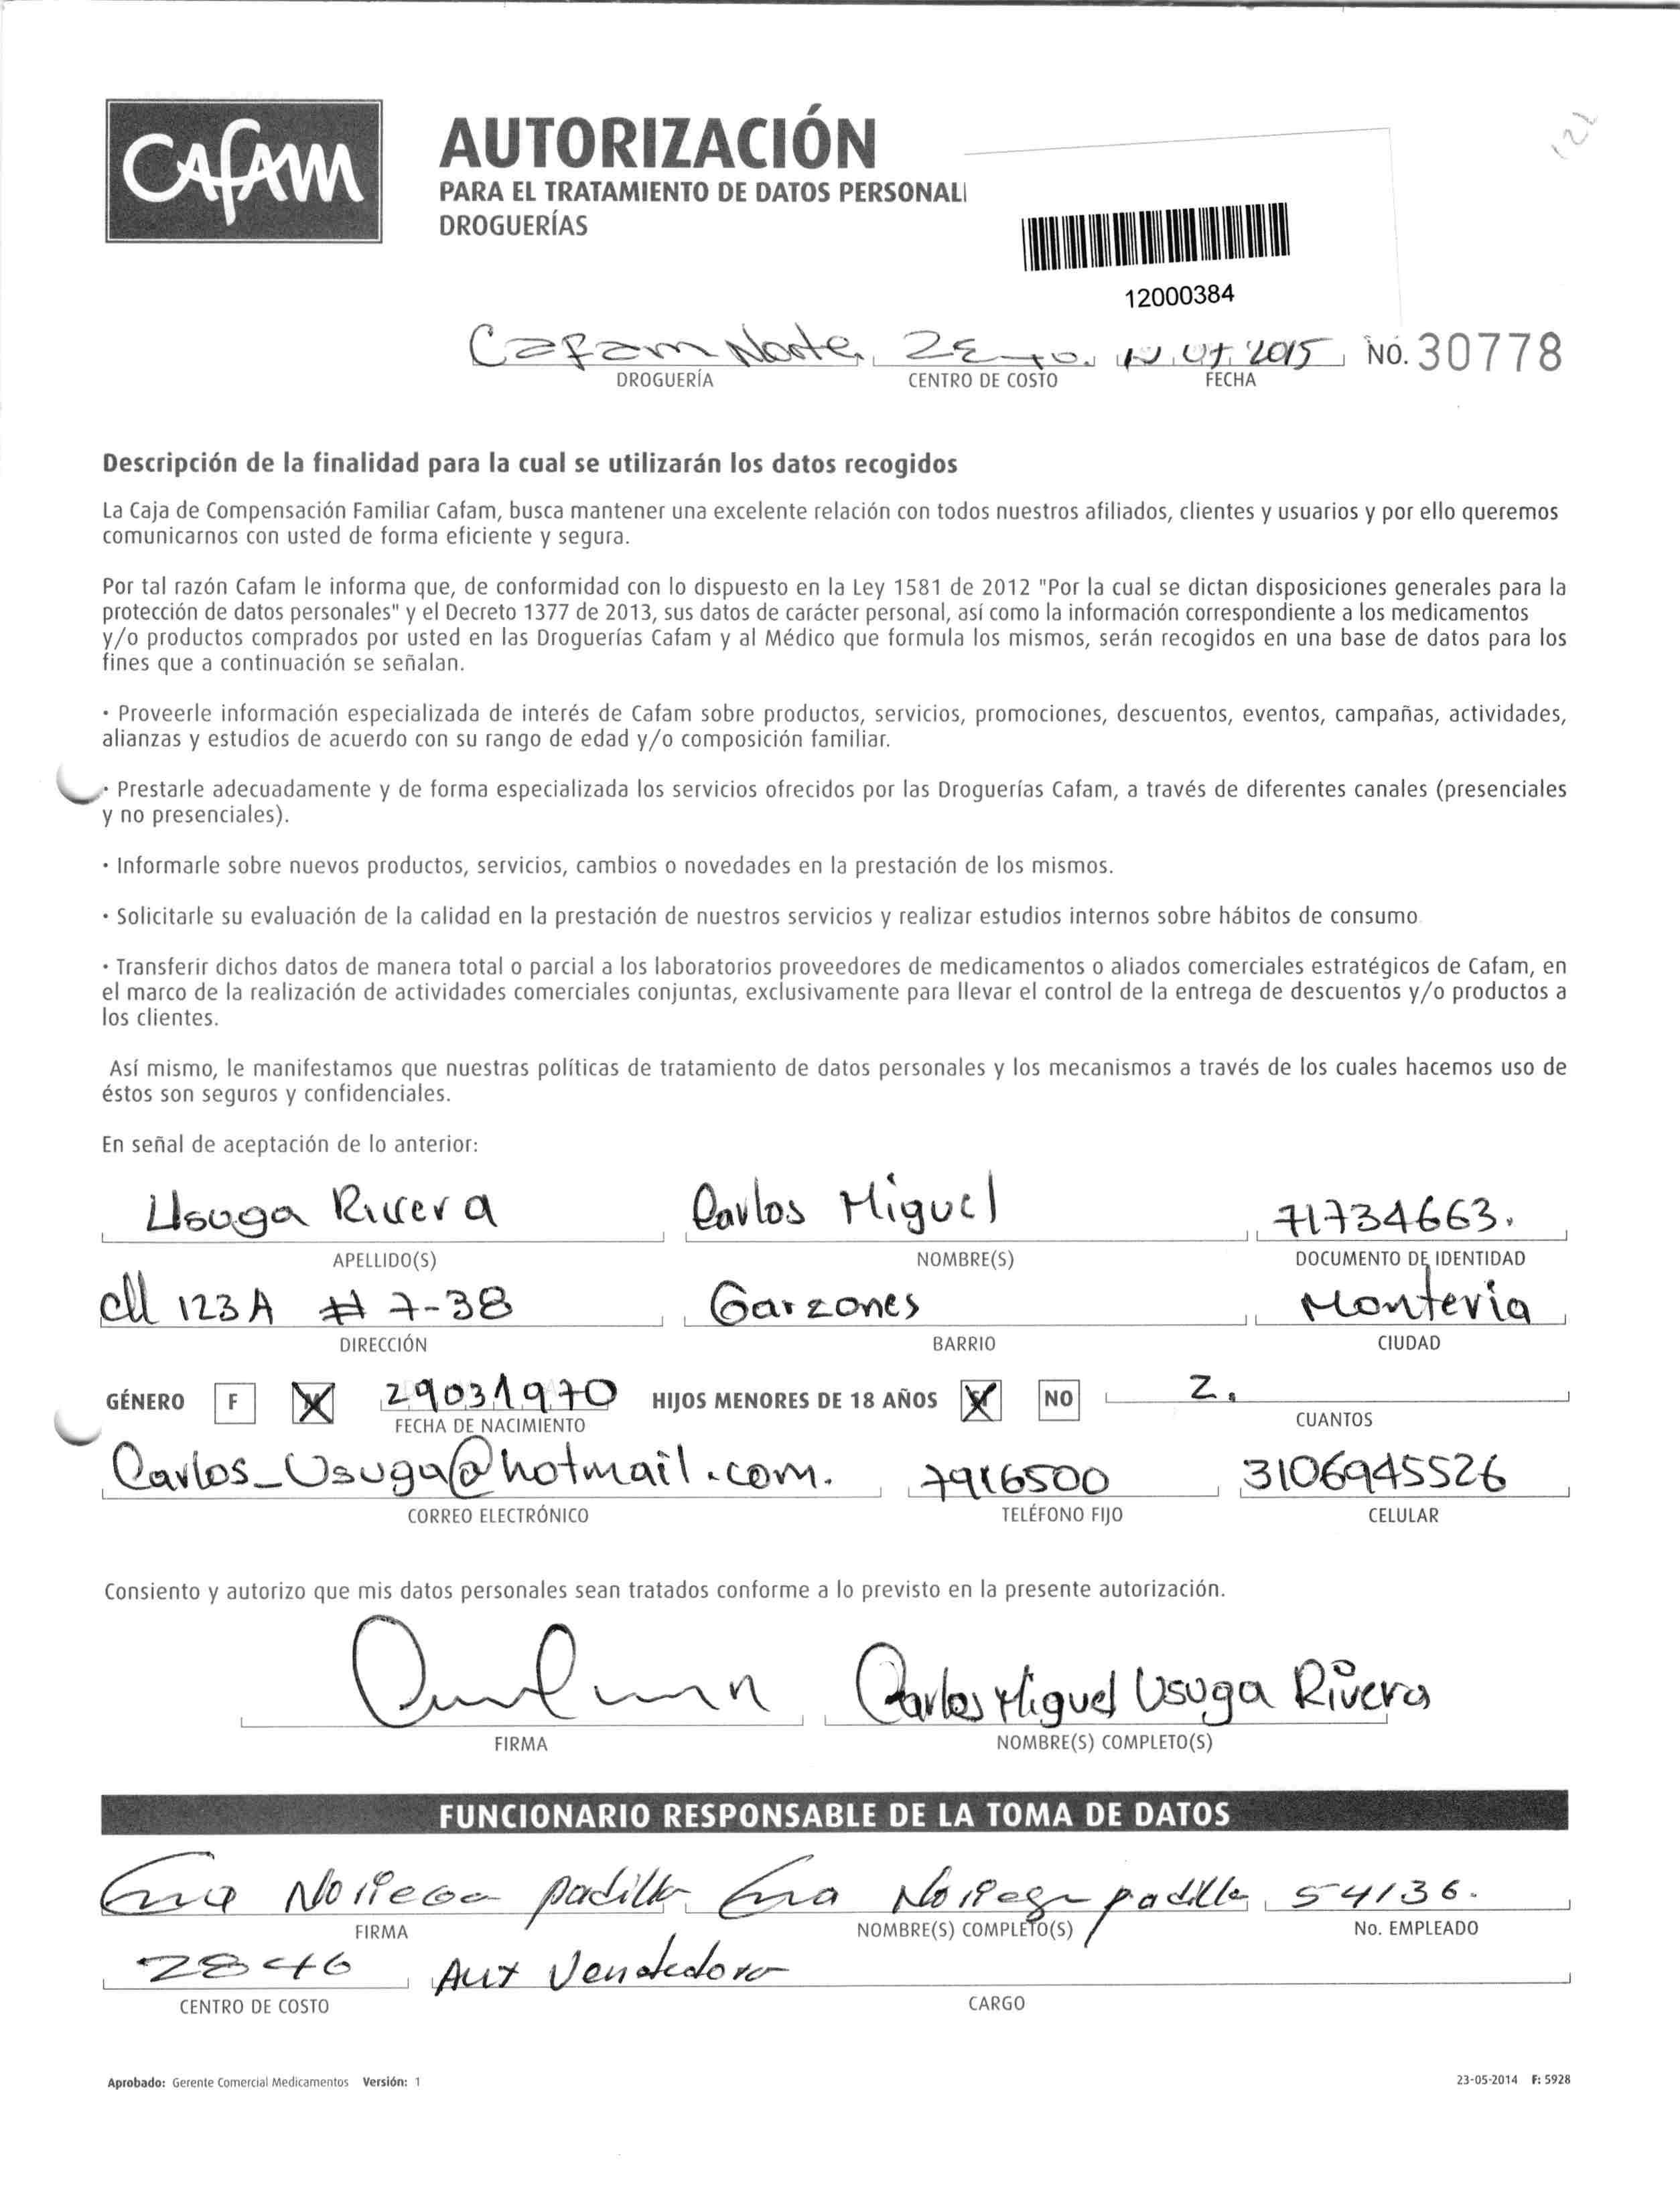 CAFAM
AUTORIZACIÓN
PARA EL TRATAMIENTO DE DATOS PERSONAL
DROGUERÍAS
12000384
Cafam Norte 2015 No. 30778
DROGUERÍA CENTRO DE COSTO FECHA
Descripción de la finalidad para la cual se utilizarán los datos recogidos
La Caja de Compensación Familiar Cafam, busca mantener una excelente relación con todos nuestros afiliados, clientes y usuarios y por ello queremos
comunicarnos con usted de forma eficiente y segura.
Por tal razón Cafam le informa que, de conformidad con lo dispuesto en la Ley 1581 de 2012 "Por la cual se dictan disposiciones generales para la
protección de datos personales" y el Decreto 1377 de 2013, sus datos de carácter personal, así como la información correspondiente a los medicamentos
y/o productos comprados por usted en las Droguerías Cafam y al Médico que formula los mismos, serán recogidos en una base de datos para los
fines que a continuación se señalan.
· Proveerle información especializada de interés de Cafam sobre productos, servicios, promociones, descuentos, eventos, campañas, actividades,
alianzas y estudios de acuerdo con su rango de edad y/o composición familiar.
· Prestarle adecuadamente y de forma especializada los servicios ofrecidos por las Droguerías Cafam, a través de diferentes canales (presenciales
y no presenciales).
· Informarle sobre nuevos productos, servicios, cambios o novedades en la prestación de los mismos.
· Solicitarle su evaluación de la calidad en la prestación de nuestros servicios y realizar estudios internos sobre hábitos de consumo
· Transferir dichos datos de manera total o parcial a los laboratorios proveedores de medicamentos o aliados comerciales estratégicos de Cafam, en
el marco de la realización de actividades comerciales conjuntas, exclusivamente para llevar el control de la entrega de descuentos y/o productos a
los clientes.
Así mismo, le manifestamos que nuestras políticas de tratamiento de datos personales y los mecanismos a través de los cuales hacemos uso de
éstos son seguros y confidenciales.
En señal de aceptación de lo anterior:
Usuga Rivera Carlos Miguel 71734663.
APELLIDO(S) NOMBRE(S) DOCUMENTO DE IDENTIDAD
Cll 123A # 7-38 Garzones Monteria
DIRECCIÓN BARRIO CIUDAD
GÉNERO F 29031970 HIJOS MENORES DE 18 AÑOS NO 2.
FECHA DE NACIMIENTO CUANTOS
Carlos_Usuga@hotmail.com. 7916500 3106945526
CORREO ELECTRÓNICO TELÉFONO FIJO CELULAR
Consiento y autorizo que mis datos personales sean tratados conforme a lo previsto en la presente autorización.
Carlos Miguel Usuga Rivera
FIRMA NOMBRE(S) COMPLETO(S)
FUNCIONARIO RESPONSABLE DE LA TOMA DE DATOS
Ena Noriega padilla Ena Noriega padilla 54136.
FIRMA NOMBRE(S) COMPLETO(S) No. EMPLEADO
Aux Vendedora
CENTRO DE COSTO CARGO
Aprobado: Gerente Comercial Medicamentos Versión: 1 23-05-2014 F: 5928